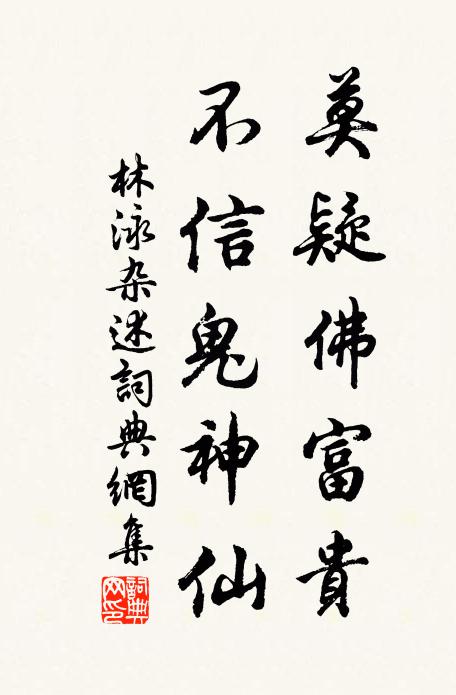 莫疑佛富貴
不信鬼神仙
林泳杂述詞典網集
詞典網印